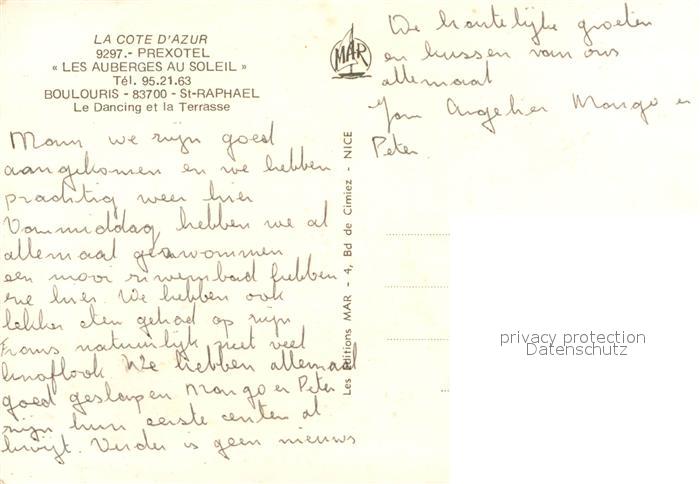 LA COTE D'AZUR
9297.- PREXOTEL
« LES AUBERGES AU SOLEIL »
Tél. 95.21.63
BOULOURIS - 83700 - St-RAPHAEL
Le Dancing et la Terrasse
Mam, we zijn goed
aangekomen en we hebben
prachtig weer hier
Vanmiddag hebben we al
allemaal gezwommen
een mooi zwembad hebben
ze hier. We hebben ook
lekker eten gehad op zijn
Frans natuurlijk met veel
knoflook We hebben allemaal
goed geslapen Mango en Peter
zijn hun eerste centen al
kwijt. Verder is geen nieuws
MAR
Les Editions MAR - 4, Bd de Cimiez - NICE
De hartelijke groeten
en kussen van ons
allemaal
Mango en
Peter.
privacy protection
Datenschutz